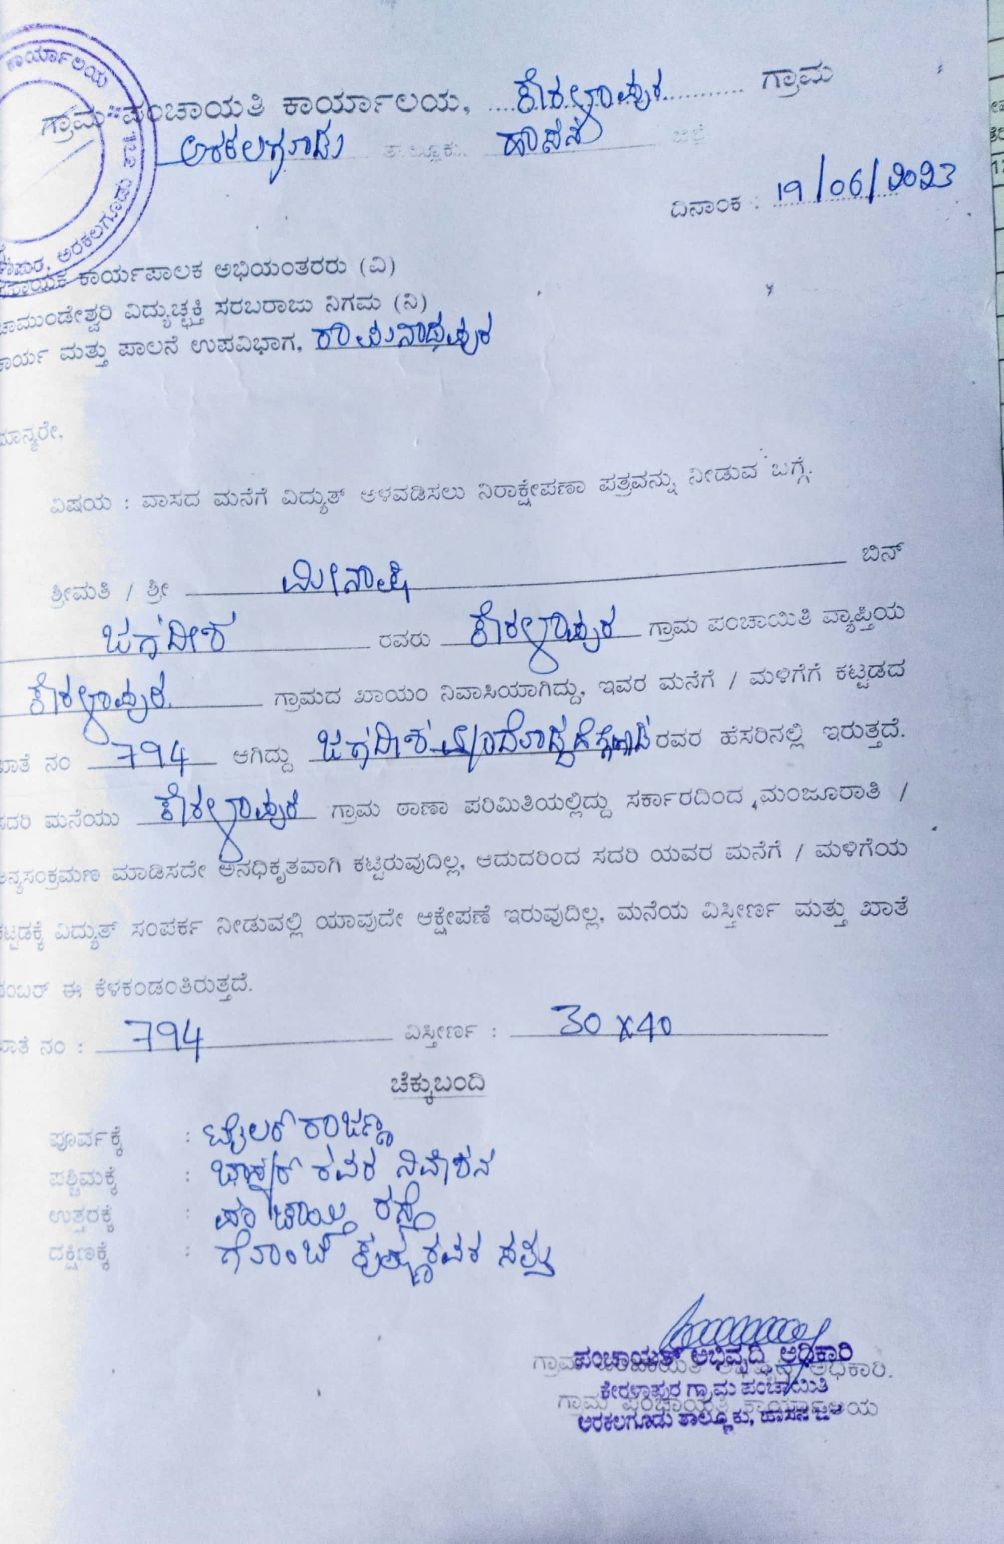 ಕಾರ್ಯಾಲಯ
ಅರಕಲಗೂಡು
ಗ್ರಾಮ ಪಂಚಾಯತಿ ಕಾರ್ಯಾಲಯ, ಕೇರಳಾಪುರ ಗ್ರಾಮ
ಅರಕಲಗೂಡು ತಾಲ್ಲೂಕು. ಹಾಸನ ಜಿಲ್ಲೆ
ದಿನಾಂಕ : 19/06/2023
ಕಾರ್ಯಪಾಲಕ ಅಭಿಯಂತರರು (ವಿ)
ಚಾಮುಂಡೇಶ್ವರಿ ವಿದ್ಯುಚ್ಛಕ್ತಿ ಸರಬರಾಜು ನಿಗಮ (ನಿ)
ಕಾರ್ಯ ಮತ್ತು ಪಾಲನೆ ಉಪವಿಭಾಗ, ರಾಮನಾಥಪುರ
ಮಾನ್ಯರೇ,
ವಿಷಯ : ವಾಸದ ಮನೆಗೆ ವಿದ್ಯುತ್ ಅಳವಡಿಸಲು ನಿರಾಕ್ಷೇಪಣಾ ಪತ್ರವನ್ನು ನೀಡುವ ಬಗ್ಗೆ.
ಶ್ರೀಮತಿ / ಶ್ರೀ ಮೀನಾಕ್ಷಿ ಬಿನ್
ಜಗದೀಶ ರವರು ಕೇರಳಾಪುರ ಗ್ರಾಮ ಪಂಚಾಯಿತಿ ವ್ಯಾಪ್ತಿಯ
ಕೇರಳಾಪುರ ಗ್ರಾಮದ ಖಾಯಂ ನಿವಾಸಿಯಾಗಿದ್ದು, ಇವರ ಮನೆಗೆ / ಮಳಿಗೆಗೆ ಕಟ್ಟಡದ
ಖಾತೆ ನಂ 794 ಆಗಿದ್ದು ಜಗದೀಶ ರವರ ಹೆಸರಿನಲ್ಲಿ ಇರುತ್ತದೆ.
ಸದರಿ ಮನೆಯು ಕೇರಳಾಪುರ ಗ್ರಾಮ ಠಾಣಾ ಪರಿಮಿತಿಯಲ್ಲಿದ್ದು ಸರ್ಕಾರದಿಂದ ಮಂಜೂರಾತಿ /
ಅನ್ಯಸಂಕ್ರಮಣ ಮಾಡಿಸದೇ ಅನಧಿಕೃತವಾಗಿ ಕಟ್ಟಿರುವುದಿಲ್ಲ, ಆದುದರಿಂದ ಸದರಿ ಯವರ ಮನೆಗೆ / ಮಳಿಗೆಯ
ಕಟ್ಟಡಕ್ಕೆ ವಿದ್ಯುತ್ ಸಂಪರ್ಕ ನೀಡುವಲ್ಲಿ ಯಾವುದೇ ಆಕ್ಷೇಪಣೆ ಇರುವುದಿಲ್ಲ, ಮನೆಯ ವಿಸ್ತೀರ್ಣ ಮತ್ತು ಖಾತೆ
ನಂಬರ್ ಈ ಕೆಳಕಂಡಂತಿರುತ್ತದೆ.
ಖಾತೆ ನಂ : 794 ವಿಸ್ತೀರ್ಣ : 30 x 40
ಚೆಕ್ಕುಬಂದಿ
ಪೂರ್ವಕ್ಕೆ : ಟೈಲರ್ ರಾಜಣ್ಣ
ಪಶ್ಚಿಮಕ್ಕೆ : ಭಾಸ್ಕರ್ ರವರ ನಿವೇಶನ
ಉತ್ತರಕ್ಕೆ : ಪಂಚಾಯ್ತಿ ರಸ್ತೆ
ದಕ್ಷಿಣಕ್ಕೆ : ಗೊಂಬೆ ಕೃಷ್ಣರವರ ಸ್ವತ್ತು
ಪಂಚಾಯತ್ ಅಭಿವೃದ್ಧಿ ಅಧಿಕಾರಿ
ಅಧಿಕಾರಿ.
ಕೇರಳಾಪುರ ಗ್ರಾಮ ಪಂಚಾಯಿತಿ
ಗ್ರಾಮ ಪಂಚಾಯತಿ ಕಾರ್ಯಾಲಯ
ಅರಕಲಗೂಡು ತಾಲ್ಲೂಕು, ಹಾಸನ ಜಿಲ್ಲೆ